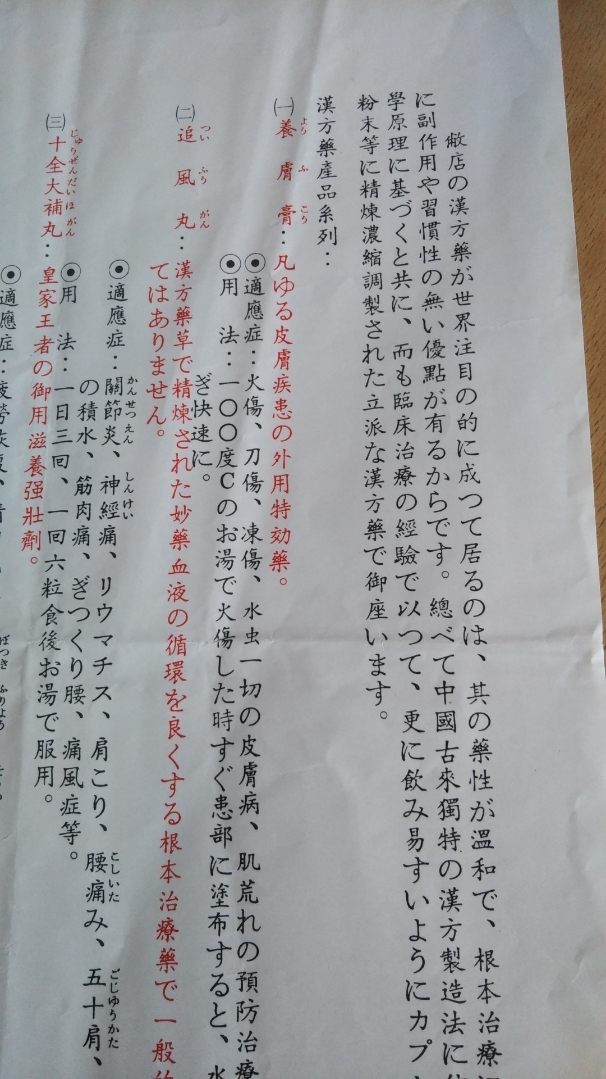 敝店の漢方藥が世界注目の的に成つて居るのは、其の藥性が溫和で、根本治療
に副作用や習慣性の無い優點が有るからです。總べて中國古來獨特の漢方製造法に
學原理に基づくと共に、而も臨床治療の經驗で以つて、更に飲み易すいようにカプ
粉末等に精煉濃縮調製された立派な漢方藥で御座います。
漢方藥產品系列：
㈠養膚膏：凡ゆる皮膚疾患の外用特効藥。
より ふ こう
◉適應症：火傷、刀傷、凍傷、水虫一切の皮膚病、肌荒れの預防治療
◉用　法：一〇〇度Cのお湯で火傷した時すぐ患部に塗布すると、水
ぎ快速に。
㈡追風丸：漢方藥草で精煉された妙藥血液の循環を良くする根本治療藥で一般的
つい ふう がん
てはありません。
◉適應症：關節炎、神經痛、リウマチス、肩こり、腰痛み、五十肩、
かんせつえん しんけい こしいた ごじゆうかた
の積水、筋肉痛、ぎつくり腰、痛風症等。
◉用　法：一日三回、一回六粒食後お湯で服用。
㈢十全大補丸：皇家王者の御用滋養强壯劑。
じゆうぜんだいほ がん
◉適應症：疲勞恢復、
ぼつき ふりよう